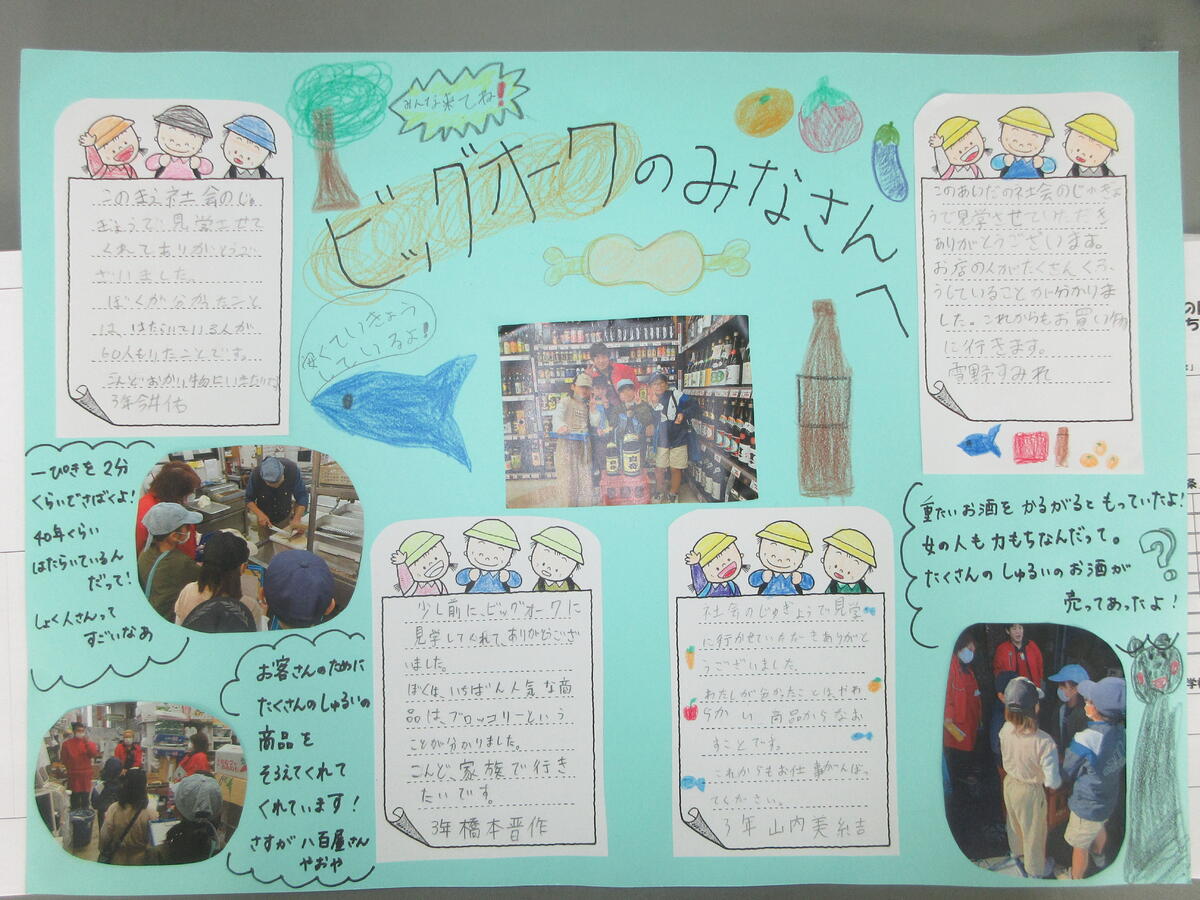 みんな来てね!
ビッグオークのみなさんへ
安くていきょう
しているよ!
このまえ社会のじゅ
ぎょうで見学させて
くれてありがとうご
ざいました。
ぼくが分かったこと
は、はたらいている人が
60人もいたことです。
こんどおかい物にいきたいな
3年今井佑
このあいだの社会のじゅぎょ
うで見学させていただき
ありがとうございます。
お店の人がたくさんくふ
うしていることが分かりま
した。これからもお買い物
に行きます。
雪野すみれ
一ぴきを2分
くらいでさばくよ!
40年くらい
はたらいているん
だって!
しょく人さんって
すごいなあ
お客さんのために
たくさんのしゅるいの
商品を
そろえてくれて
くれています!
さすが八百屋さん
やおや
少し前に、ビッグオークに
見学してくれて、ありがとうござ
いました。
ぼくは、いちばん人気な商
品は、ブロッコリーという
ことが分かりました。
こんど、家族で行き
たいです。
3年橋本晋作
社会のじゅぎょうで見学
に行かせていただきありがと
うございました。
わたしが分かたことはやわ
らかい商品からなお
すことです。
これからもお仕事がんば
てください。
3年山内美結
重たいお酒をかるがるともっていたよ!
女の人も力もちなんだって。
たくさんのしゅるいのお酒が
売ってあったよ!
?